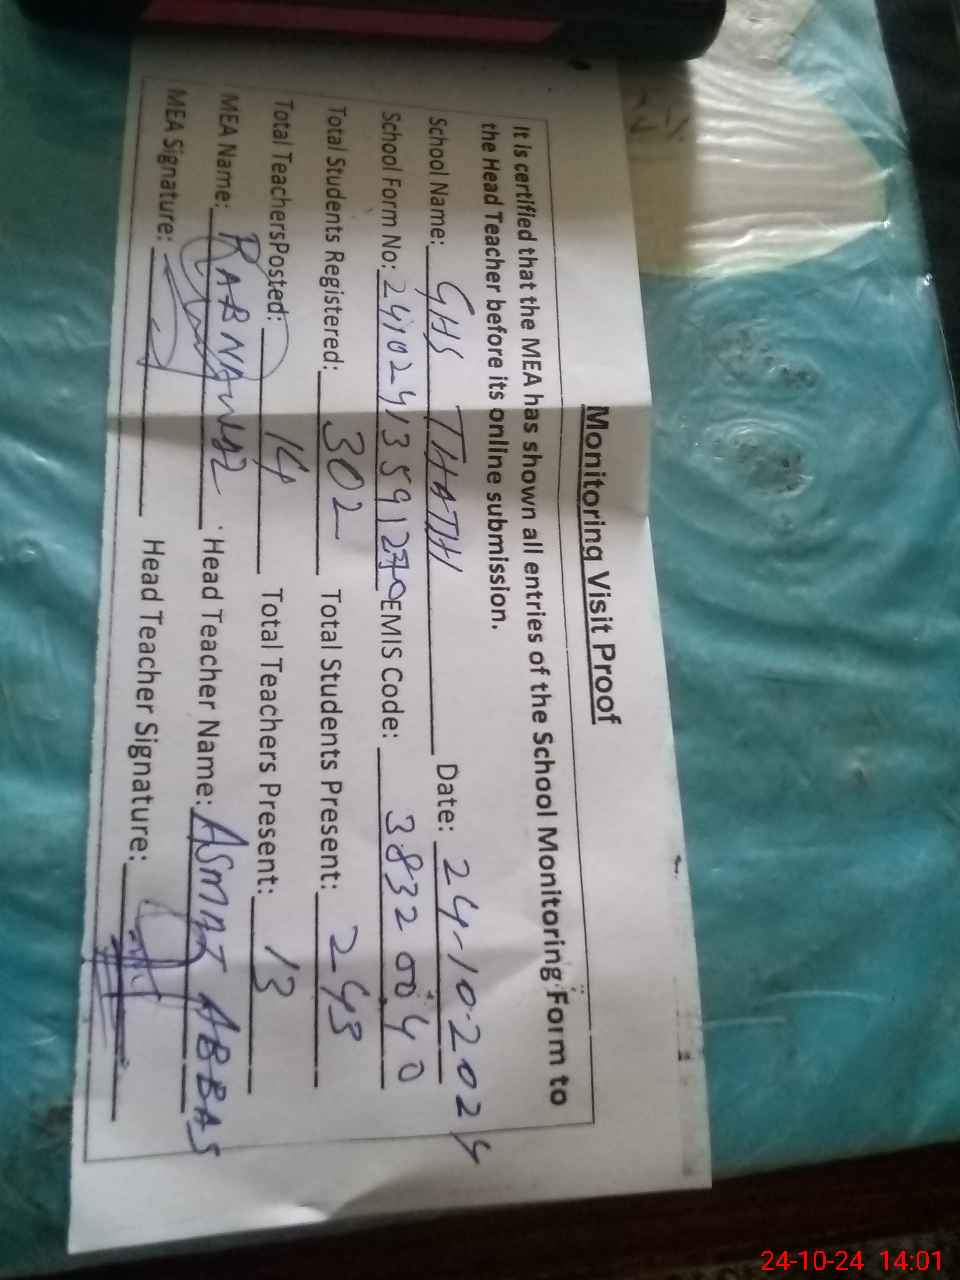 Monitoring Visit Proof
It is certified that the MEA has shown all entries of the School Monitoring Form to
the Head Teacher before its online submission.
School Name: GHS THATH Date: 24-10-2024
School Form No: EMIS Code: 38320040
Total Students Registered: 302 Total Students Present: 243
Total TeachersPosted: 14 Total Teachers Present: 13
MEA Name: RABNAWAZ Head Teacher Name: ASMAT ABBAS
MEA Signature: Head Teacher Signature:
24-10-24 14:01